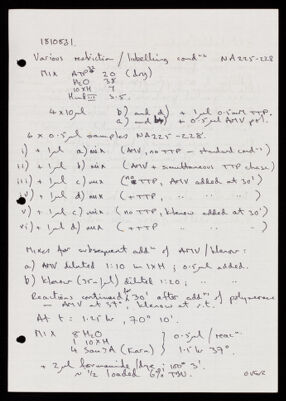 1810831.
Various restriction / labelling condns NA225-228
Mix ATP32 20 (dry)
H2O 38
10xH 7
Hind III 3.5.
4 x 10μl b) and d) + 1μl 0.5mM TTP.
a) and b) + 0.5μl AMV pol.
6 x 0.5μl samples NA225-228.
i) + 1μl a) mix (AMV, no TTP - standard condns)
ii) + 1μl b) mix (AMV + simultaneous TTP chase)
iii) + 1μl c) mix (no TTP, AMV added at 30')
iv) + 1μl d) mix (+TTP, " " ")
v) + 1μl c) mix. (no TTP, klenow added at 30')
vi) + 1μl d) mix (+TTP " " ")
Mixes for subsequent addn of AMV / klenow:
a) AMV diluted 1:10 in 1xH; 0.5μl added.
b) klenow (5u/μl) diluted 1:20; " "
Reactions continued for 30' after addn of polymerase
- AMV at 37°, klenow at r.t.
At t = 1.25 hr, 70° 10'.
Mix 8 H2O
1 10xH
4 Sau3A (Farm) } 0.5μl / reacn. 1.5 hr 37°.
+ 2μl formamide/dye; 100° 3'.
~ 1/2 loaded 6% TSW.
over